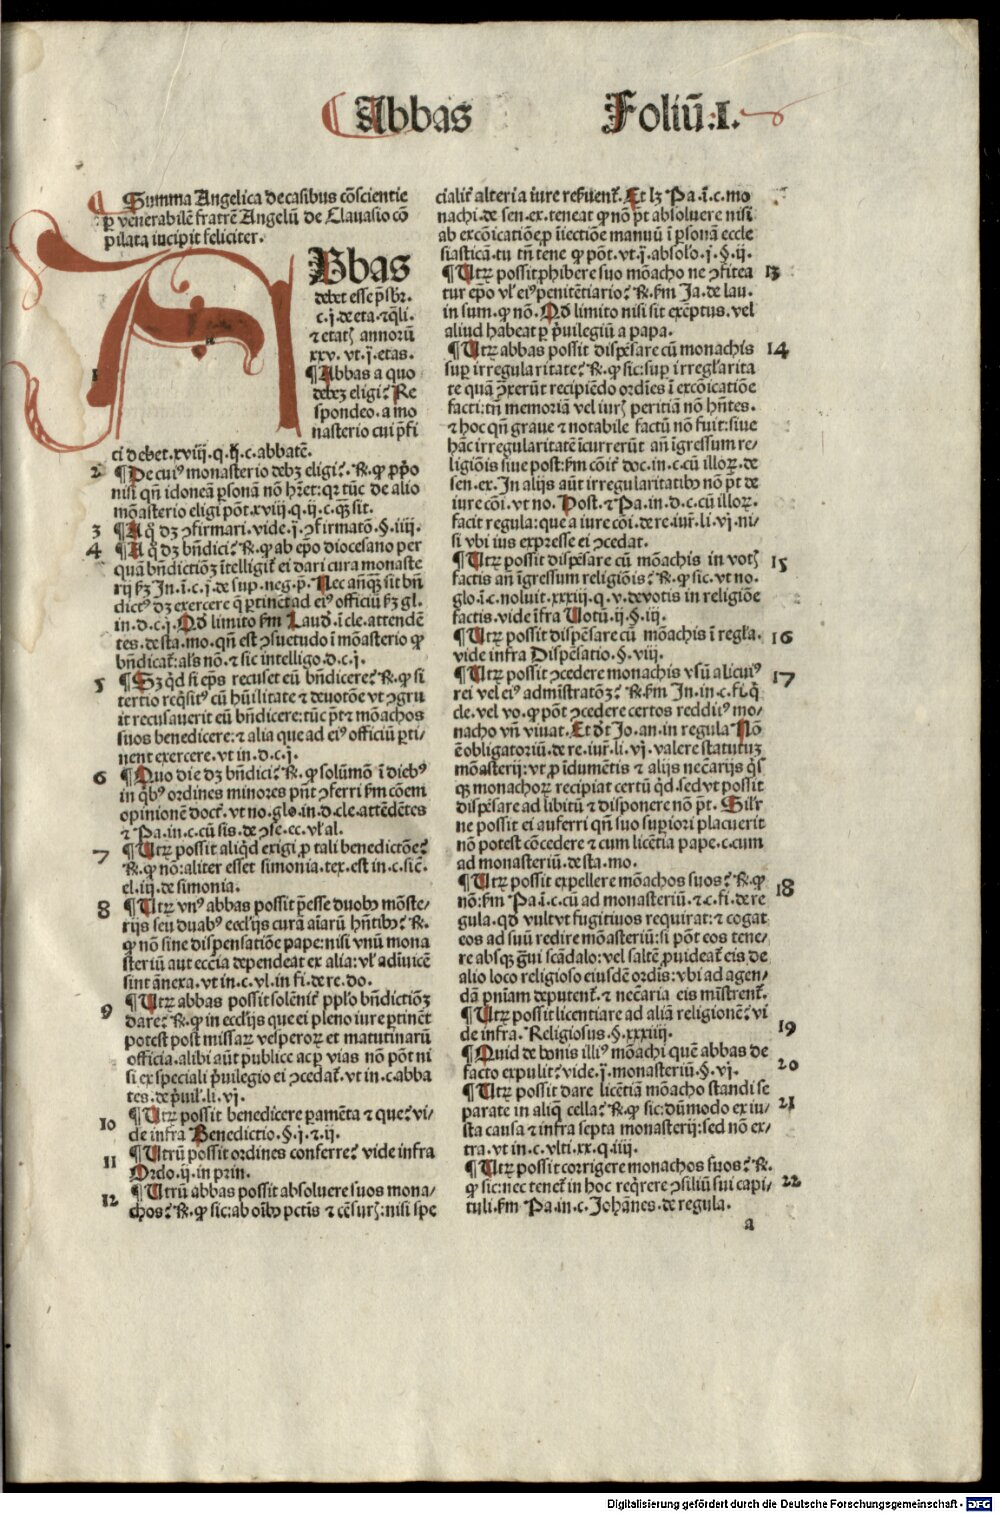 Abbas Foliū.I.
¶ Summa Angelica de casibus cōscientie
ꝑ venerabilē fratrē Angelū de Clauasio cō
pilata incipit feliciter.
ABbas
debet esse p̄sbr̄.
c.j.de eta.⁊ q̄li.
⁊ etatꝭ annorū
xxv. vt.j̄.etas.
¶ Abbas a quo
debeꝫ eligi? Re
spondeo.a mo
nasterio cui p̄fi
1
ci debet.xviij.q.ij.c.abbatē.
2 ¶ De cuiꝰ monasterio debꝫ eligi?. ℞.ꝙ ꝓpō
nisi qn̄ idoneā ꝑsonā nō hr̄et:qr tūc de alio
mōasterio eligi pōt.xviij.q.ij.c.qꝫ sit.
3 ¶ A q̄ dꝫ ꝯfirmari.vide.j̄.ꝯfirmatō.§.iiij.
4 ¶ A q̄ dꝫ bn̄dici? ℞.ꝙ ab ep̄o diocesano per
quā bn̄dictiōꝫ ītelligit̄ ei dari cura monaste
rij ẜꝫ In.ī.c.j.de sup.neg.p̄. Nec an̄qꝫ sit bn̄
dictꝰ dꝫ exercere q̄ ꝑtinēt ad eiꝰ officiū ẜꝫ gl.
in.d.c.j. Qd̄ limito ẜm Laud̄.ī cle.attendē
tes.de sta.mo.qn̄ est ꝯsuetudo ī mōasterio ꝙ
bn̄dicat̄:als̄ nō.⁊ sic intelligo.d.c.j.
5 ¶ Sꝫ qd̄ si ep̄s recuset eū bn̄dicere? ℞.ꝙ si
tertio req̄sitꝰ cū hūilitate ⁊ deuotōe vt ꝯgru
it recusauerit eū bn̄dicere:tūc p̄t ⁊ mōachos
suos benedicere:⁊ alia que ad eiꝰ officiū ꝑti-
nent exercere.vt in.d.c.j.
6 ¶ Quo die dꝫ bn̄dici? ℞.ꝙ solūmō ī diebꝰ
in q̄bꝰ ordines minores pn̄t ꝯferri ẜm cōem
opinionē doct̄.vt no.glo.in.d.cle.attēdētes
⁊ Pa.in.c.cū sis.de ꝯse.ec.vl̄ al.
7 ¶ Utꝝ possit aliq̄d exigi ꝓ tali benedictōe?
℞.ꝙ nō:aliter esset simonia.tex.est in.c.sic̄.
el.iij.de simonia.
8 ¶ Utꝝ vnꝰ abbas possit p̄esse duobꝰ mōste/
rijs seu duabꝰ eccl̄ijs curā aīarū hn̄tibꝰ? ℞.
ꝙ nō sine dispensatiōe pape:nisi vnū mona
steriū aut ecc̄ia dependeat ex alia:vl̄ adīuicē
sint ānexa.vt in.c.vl.in fi.de re.do.
9 ¶ Utꝝ abbas possit solēnit̄ ppl̄o bn̄dictiōꝫ
dare? ℞.ꝙ in eccl̄ijs que ei pleno iure ꝑtinēt
potest post missaꝝ vesperoꝝ et matutinarū
officia.alibi aūt publice ac ꝑ vias nō pōt ni
si ex speciali p̄uilegio ei ꝯcedat̄.vt in.c.abba
tes.de p̄uil̄.li.vj.
10 ¶ Utꝝ possit benedicere ꝑamēta ⁊ que? vi/
de infra Benedictio.§.j.⁊.ij.
11 ¶ Utrū possit ordines conferre? vide infra
Ordo.ij.in prin.
12 ¶ Utrū abbas possit absoluere suos mona/
chos? ℞.ꝙ sic:ab oībꝰ pctīs ⁊ cēsurꝭ:nisi spe
cialit̄ alteri a iure reẜuent̄. Et lꝫ Pa.ī.c.mo
nachi.de sen.ex.teneat ꝙ nō p̄t absoluere nisi
ab excōicatiōe ꝓ īiectiōe manuū ī ꝑsonā eccle
siasticā.tu tn̄ tene ꝙ pōt.vt.j̄.absolo.j.§.ij.
¶ Utꝝ possit ꝓhibere suo mōacho ne ꝯfitea 13
tur ep̄o vl̄ eiꝰ penitētiario? ℞.ẜm Ja.de lau.
in sum.ꝙ nō. Qd̄ limito nisi sit exēptus.vel
aliud habeat ꝑ p̄uilegiū a papa.
¶ Utꝝ abbas possit dispēsare cū monachis 14
suꝑ irregularitate? ℞.ꝙ sic:suꝑ irregl̄arita
te quā ꝯtraxerūt recipiēdo ordīes ī excōicatiōe
facti:tn̄ memoriā vel iurꝭ peritiā nō hn̄tes.
⁊ hoc qn̄ graue ⁊ notabile factū nō fuit:siue
hāc irregularitatē īcurrerūt an̄ īgressum re/
ligiōis siue post:ẜm cōit̄ doc.in.c.cū illoꝝ.de
sen.ex. In alijs aūt irregularitatibꝰ nō p̄t de
iure cōi.vt no. Host.⁊ Pa.in.d.c.cū illoꝝ.
facit regula:que a iure cōi.de re.iur̄.li.vj.ni/
si vbi ius expresse ei ꝯcedat.
¶ Utꝝ possit dispēsare cū mōachis in votꝭ 15
factis an̄ īgressum religiōis? ℞.ꝙ sic.vt no.
glo.ī.c.noluit.xxxiij.q.v.de votis in religiōe
factis.vide īfra Uotū.ij.§.iij.
¶ Utꝝ possit dispēsare cū mōachis ī regl̄a. 16
vide infra Dispēsatio.§.viij.
¶ Utꝝ possit ꝯcedere monachis vsū alicuiꝰ 17
rei vel eiꝰ admīstratōꝫ? ℞.ẜm In.in.c.fi.q̄
cle.vel vo.ꝙ pōt ꝯcedere certos redditꝰ mo/
nacho vn̄ viuat. Et dt̄ Jo.an.in regula Nō
ē obligatoriū.de re.iur̄.li.vj.valere statutuꝫ
mōasterij:vt ꝓ īdumētis ⁊ alijs nec̄arijs q̄s
qꝫ monachoꝝ recipiat certū qd̄.sed vt possit
dispēsare ad libitū ⁊ disponere nō p̄t. Sil̄r
ne possit ei auferri qn̄ suo suꝑiori placuerit
nō potest cōcedere ⁊ cum licētia pape.c.cum
ad monasteriū.de sta.mo.
¶ Utꝝ possit expellere mōachos suos? ℞.ꝙ 18
nō:ẜm Pa.ī.c.cū ad monasteriū.⁊.c.fi.de re
gula.qd̄ vult vt fugitiuos requirat:⁊ cogat
eos ad suū redire mōasteriū:si pōt eos tene/
re absqꝫ gͣui scādalo:vel saltē ꝓuideat̄ eis de
alio loco religioso eiusdē ordīs:vbi ad agen/
dā pn̄iam deputent̄.⁊ nec̄aria eis mīstrent̄.
¶ Utꝝ possit licentiare ad aliā religionē? vi 19
de infra. Religiosus.§.xxxiij.
¶ Quid de bonis illiꝰ mōachi quē abbas de
facto expulit? vide.j̄.monasteriū.§.vj. 20
¶ Utꝝ possit dare licētiā mōacho standi se
parate in aliq̄ cella? ℞.ꝙ sic:dūmodo ex iu/ 21
sta causa ⁊ infra septa monasterij:sed nō ex/
tra.vt in.c.vlti.xx.q.iiij.
¶ Utꝝ possit corrigere monachos suos? ℞.
ꝙ sic:nec tenet̄ in hoc req̄rere ꝯsiliū sui capi/ 22
tuli.ẜm Pa.in.c. Johānes.de regula.
a
Digitalisierung gefördert durch die Deutsche Forschungsgemeinschaft - DFG